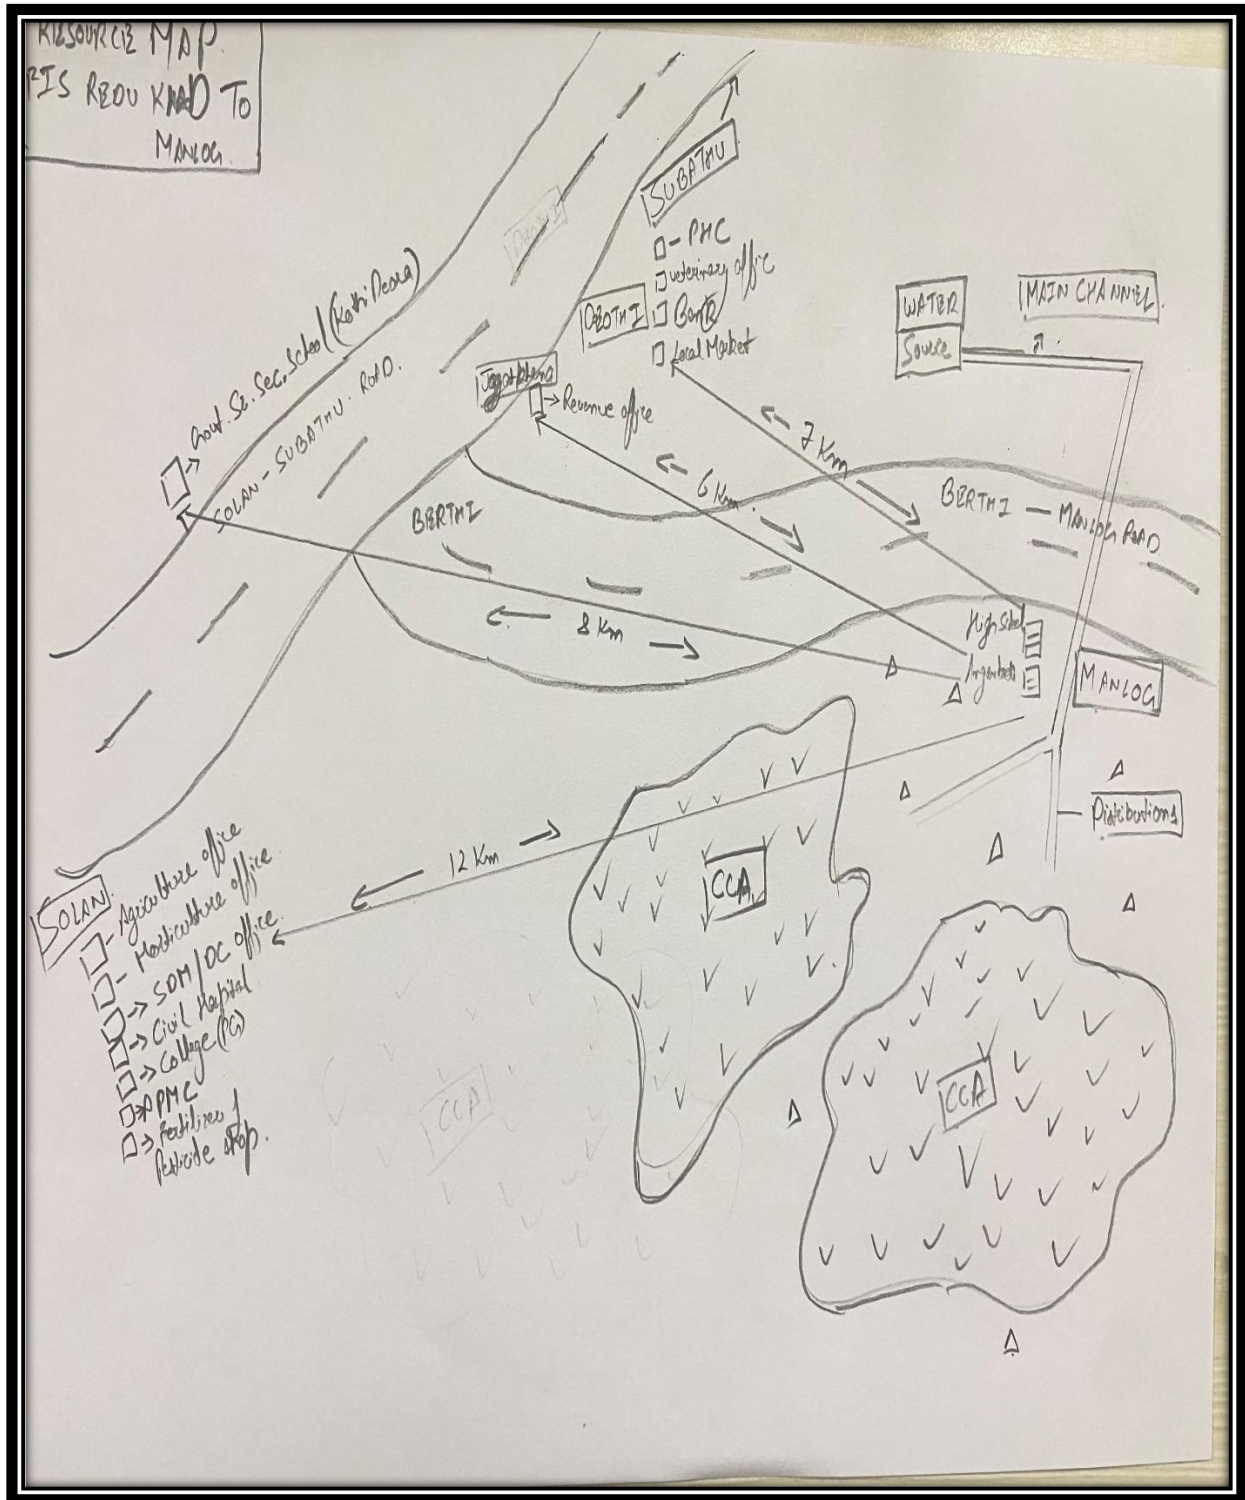 RESOURCE MAP.
FIS REDU KHAD TO
MANLOG.
SUBATHU
- PHC
veterinary office
Bank
Local Market
DEOTHI
WATER
Source
MAIN CHANNEL.
Govt. Sr. Sec. School (Kothi Deora)
SOLAN - SUBATHU ROAD.
→ Revenue office
7 Km
6 Km
BERTHI
BERTHI — MANLOG ROAD
8 Km
High School
MANLOG
Distributions
12 Km
CCA
SOLAN.
- Agriculture office
- Horticulture office
→ SDM/DC office.
→ Civil Hospital
→ College (PG)
→ APMC
→ Fertilizer /
Pesticide shop.
CCA
CCA